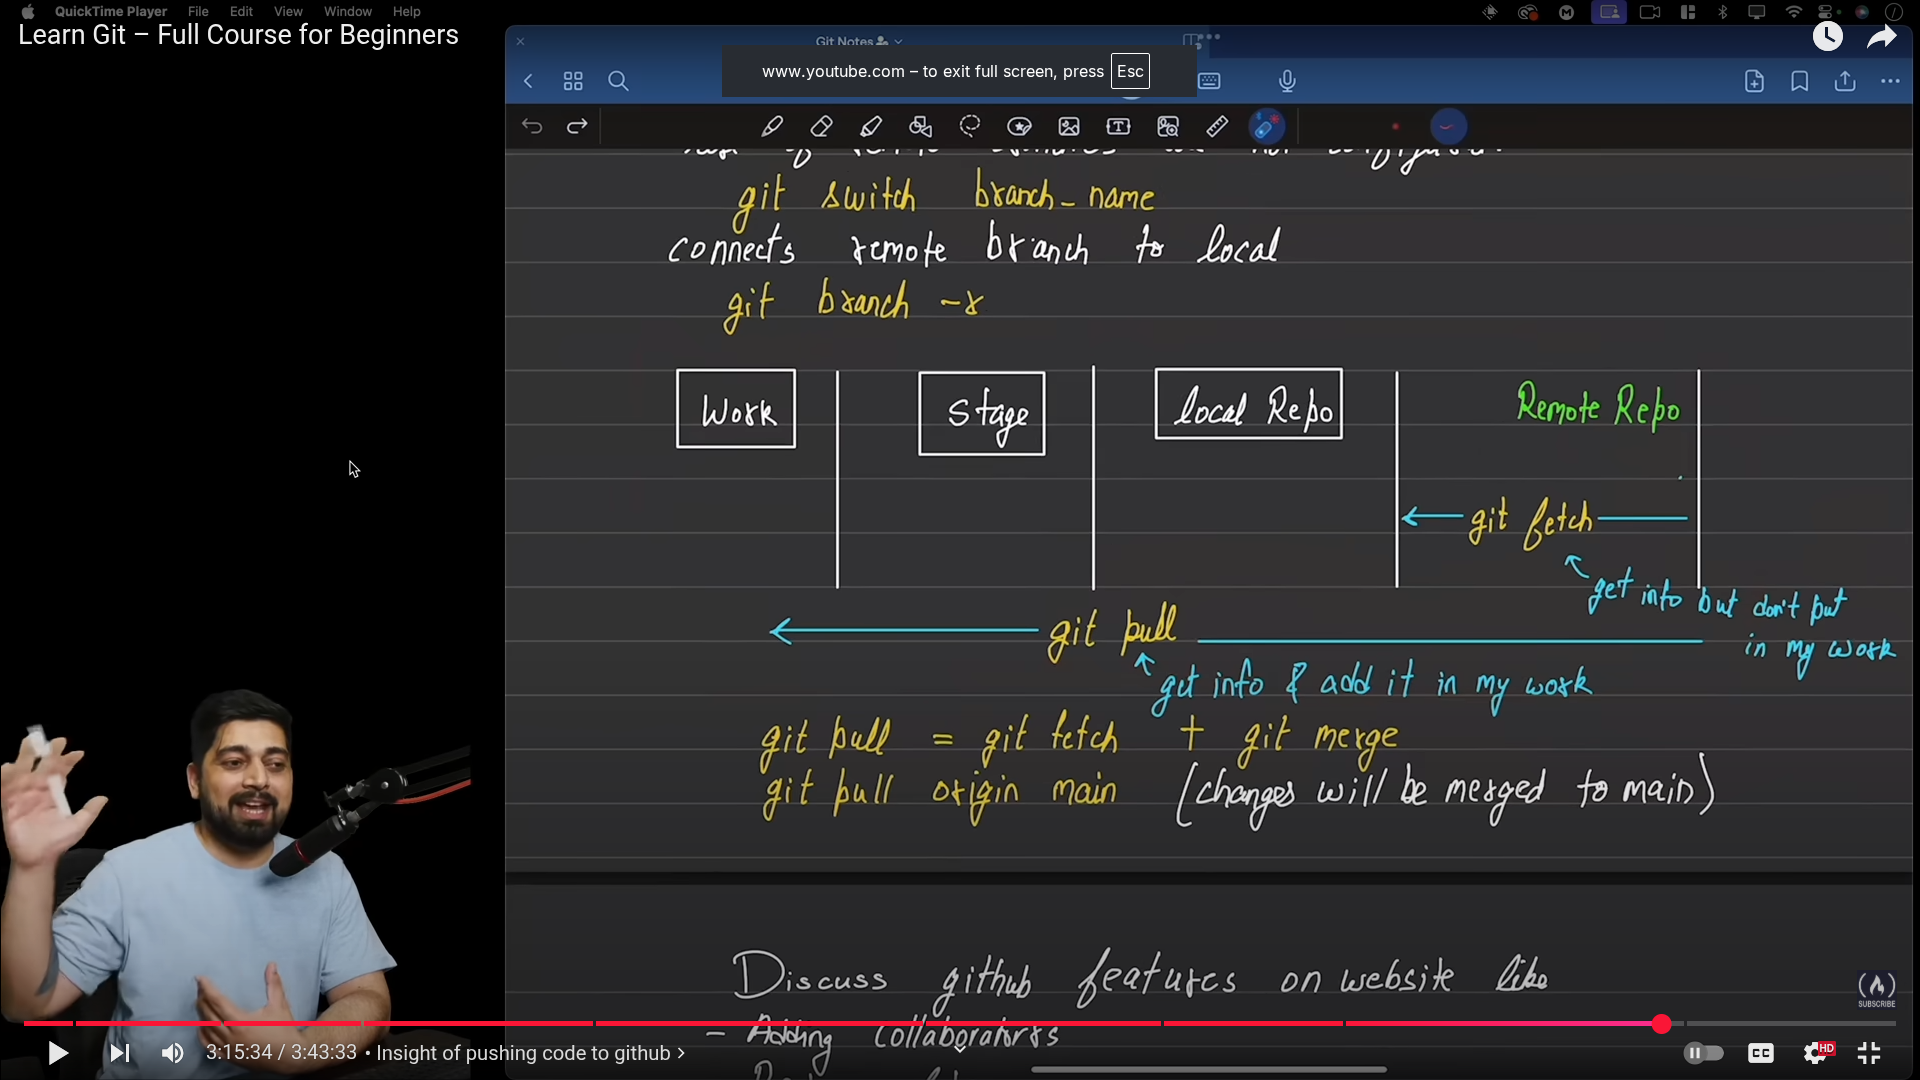 QuickTime Player File Edit View Window Help
Learn Git – Full Course for Beginners
Git Notes
www.youtube.com – to exit full screen, press Esc
git switch branch_name
connects remote branch to local
git branch -r
Work Stage local Repo Remote Repo
git fetch
get info but don't put
in my work
git pull
get info & add it in my work
git pull = git fetch + git merge
git pull origin main (changes will be merged to main)
Discuss github features on website like
- Adding collaborators
SUBSCRIBE
3:15:34 / 3:43:33 • Insight of pushing code to github
CC HD